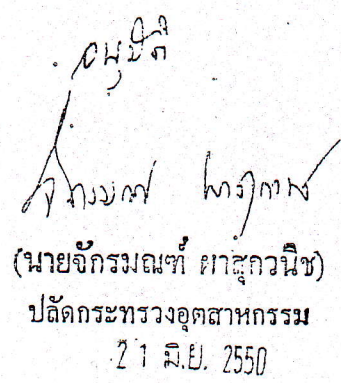 อนุมัติ
(นายจักรมณฑ์ ผาสุกวนิช)
ปลัดกระทรวงอุตสาหกรรม
21 มิ.ย. 2550